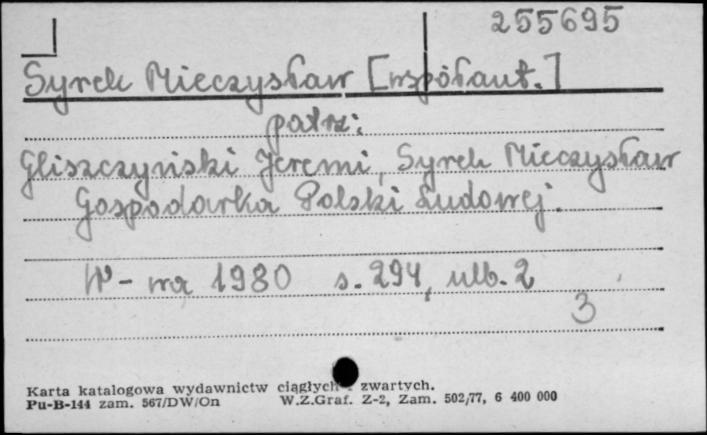 255695
Syrek Mieczysław [współaut.]
patrz:
Gliszczyński Jeremi, Syrek Mieczysław
Gospodarka Polski Ludowej.
W-wa 1980 s. 294, ulb. 2
3
Karta katalogowa wydawnictw ciągłych i zwartych.
Pu-B-144 zam. 567/DW/On W.Z.Graf. Z-2, Zam. 502/77, 6 400 000